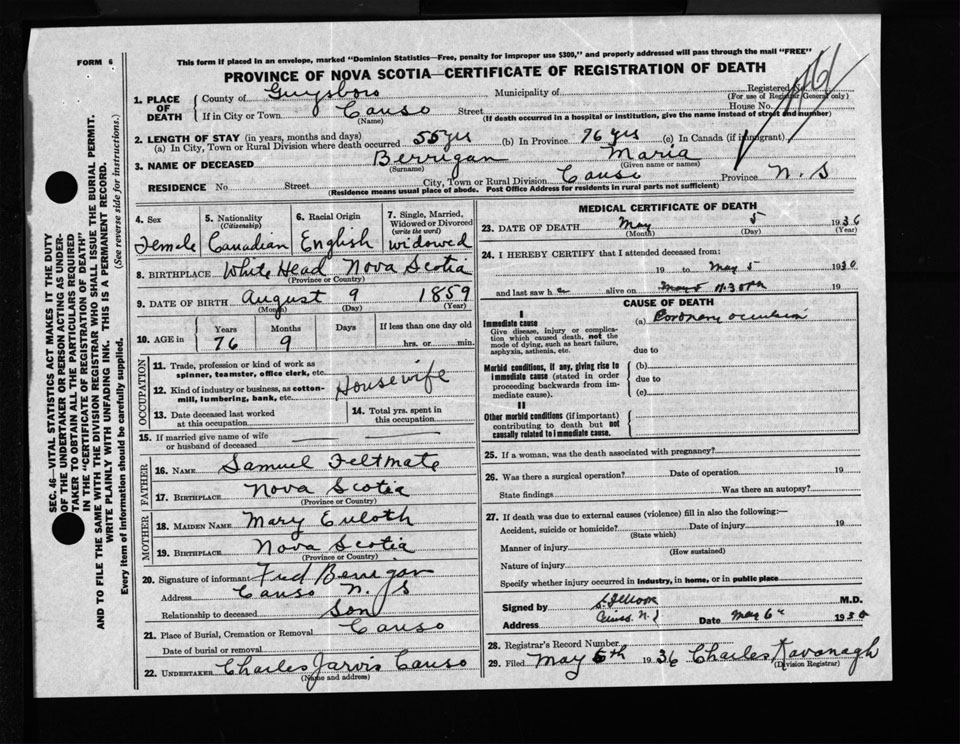 FORM 6
This form if placed in an envelope, marked "Dominion Statistics—Free, penalty for improper use $300," and properly addressed will pass through the mail "FREE"
PROVINCE OF NOVA SCOTIA—CERTIFICATE OF REGISTRATION OF DEATH
Registered No.
(For use of Registrar General only)
1. PLACE OF DEATH
County of Guysboro Municipality of
If in City or Town Canso Street House No.
(Name) (If death occurred in a hospital or institution, give the name instead of street and number)
2. LENGTH OF STAY (in years, months and days)
(a) In City, Town or Rural Division where death occurred 55 yrs (b) In Province 76 yrs (c) In Canada (if immigrant)
3. NAME OF DECEASED Berrigan Maria
(Surname) (Given name or names)
RESIDENCE No. Street City, Town or Rural Division Canso Province N. S
(Residence means usual place of abode. Post Office Address for residents in rural parts not sufficient)
4. Sex
Female
5. Nationality
(Citizenship)
Canadian
6. Racial Origin
English
7. Single, Married, Widowed or Divorced
(write the word)
widowed
8. BIRTHPLACE White Head Nova Scotia
(Province or Country)
9. DATE OF BIRTH August 9 1859
(Month) (Day) (Year)
10. AGE in
Years Months Days If less than one day old
76 9 hrs. or min.
OCCUPATION
11. Trade, profession or kind of work as spinner, teamster, office clerk, etc.
12. Kind of industry or business, as cotton-mill, lumbering, bank, etc.
Housewife
13. Date deceased last worked at this occupation
14. Total yrs. spent in this occupation
15. If married give name of wife or husband of deceased
FATHER
16. NAME Samuel Feltmate
17. BIRTHPLACE Nova Scotia
(Province or Country)
MOTHER
18. MAIDEN NAME Mary Euloth
19. BIRTHPLACE Nova Scotia
(Province or Country)
20. Signature of informant Fred Berrigan
Address Canso N. S
Relationship to deceased Son
21. Place of Burial, Cremation or Removal Canso
Date of burial or removal
22. UNDERTAKER Charles Jarvis Canso
(Name and address)
MEDICAL CERTIFICATE OF DEATH
23. DATE OF DEATH May 5 1936
(Month) (Day) (Year)
24. I HEREBY CERTIFY that I attended deceased from:
19 to May 5 1930
and last saw h er alive on May 5 11.30 19
CAUSE OF DEATH
I
Immediate cause
Give disease, injury or complication which caused death, not the mode of dying, such as heart failure, asphyxia, asthenia, etc.
(a) Coronary occlusion
due to
Morbid conditions, if any, giving rise to immediate cause (stated in order proceeding backwards from immediate cause).
(b)
due to
(c)
II
Other morbid conditions (if important) contributing to death but not causally related to immediate cause.
25. If a woman, was the death associated with pregnancy?
26. Was there a surgical operation? Date of operation 19
State findings Was there an autopsy?
27. If death was due to external causes (violence) fill in also the following:—
Accident, suicide or homicide? Date of injury 19
(State which)
Manner of injury
(How sustained)
Nature of injury
Specify whether injury occurred in industry, in home, or in public place
Signed by M.D.
Address Date May 6 1930
28. Registrar's Record Number
29. Filed May 6th 1936 Charles Kavanagh
(Division Registrar)
SEC. 46—VITAL STATISTICS ACT MAKES IT THE DUTY OF THE UNDERTAKER OR PERSON ACTING AS UNDERTAKER TO OBTAIN ALL THE PARTICULARS REQUIRED IN THE "CERTIFICATE OF REGISTRATION OF DEATH" AND TO FILE THE SAME WITH THE DIVISION REGISTRAR WHO SHALL ISSUE THE BURIAL PERMIT.
WRITE PLAINLY WITH UNFADING INK. THIS IS A PERMANENT RECORD.
Every item of information should be carefully supplied. (See reverse side for instructions.)